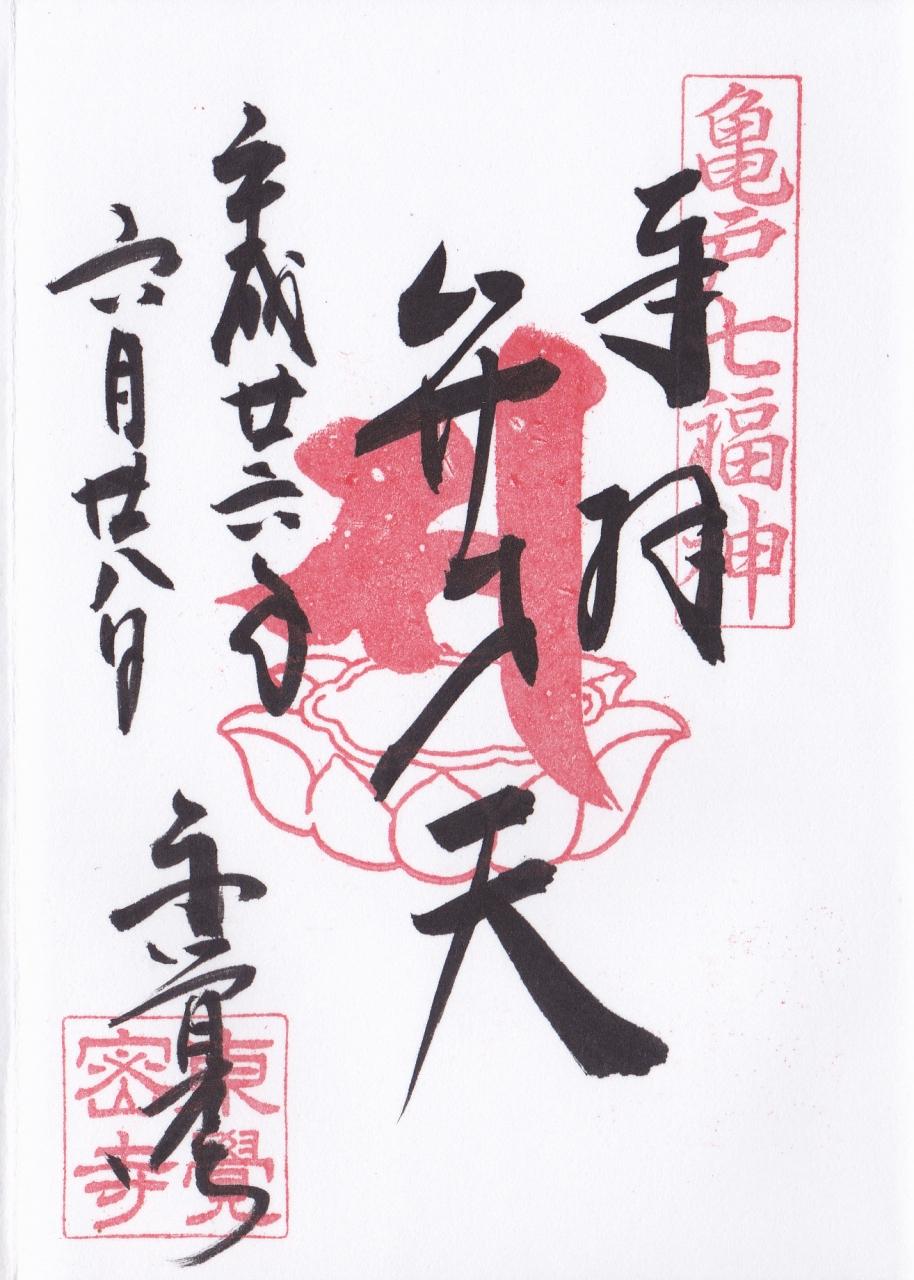 亀戸七福神
奉拝
弁才天
平成廿六年
六月廿八日
東覺寺
東覺
密寺